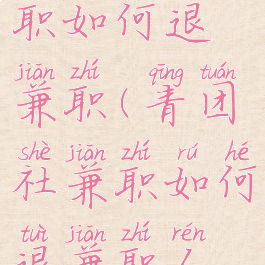 职如何退
jiān zhí qīng tuán
兼职(青团
shè jiān zhí rú hé
社兼职如何
tuì jiān zhí rén
退兼职人